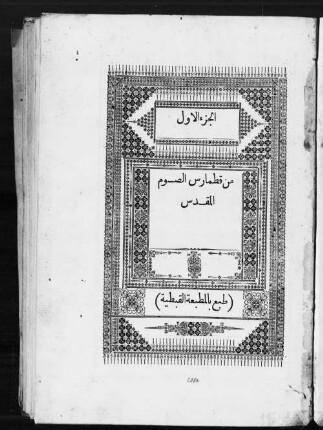 الجزء الاول
من قطمارس الصوم
المقدس
(طبع بالمطبعة القبطية)